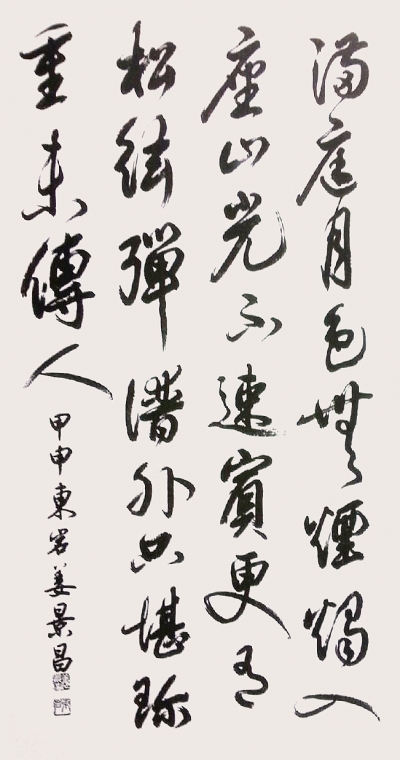 滿庭月色無煙燭入
座山光不速賓更有
松絃彈譜外只堪珍
重未傳人
甲申東岩姜景昌